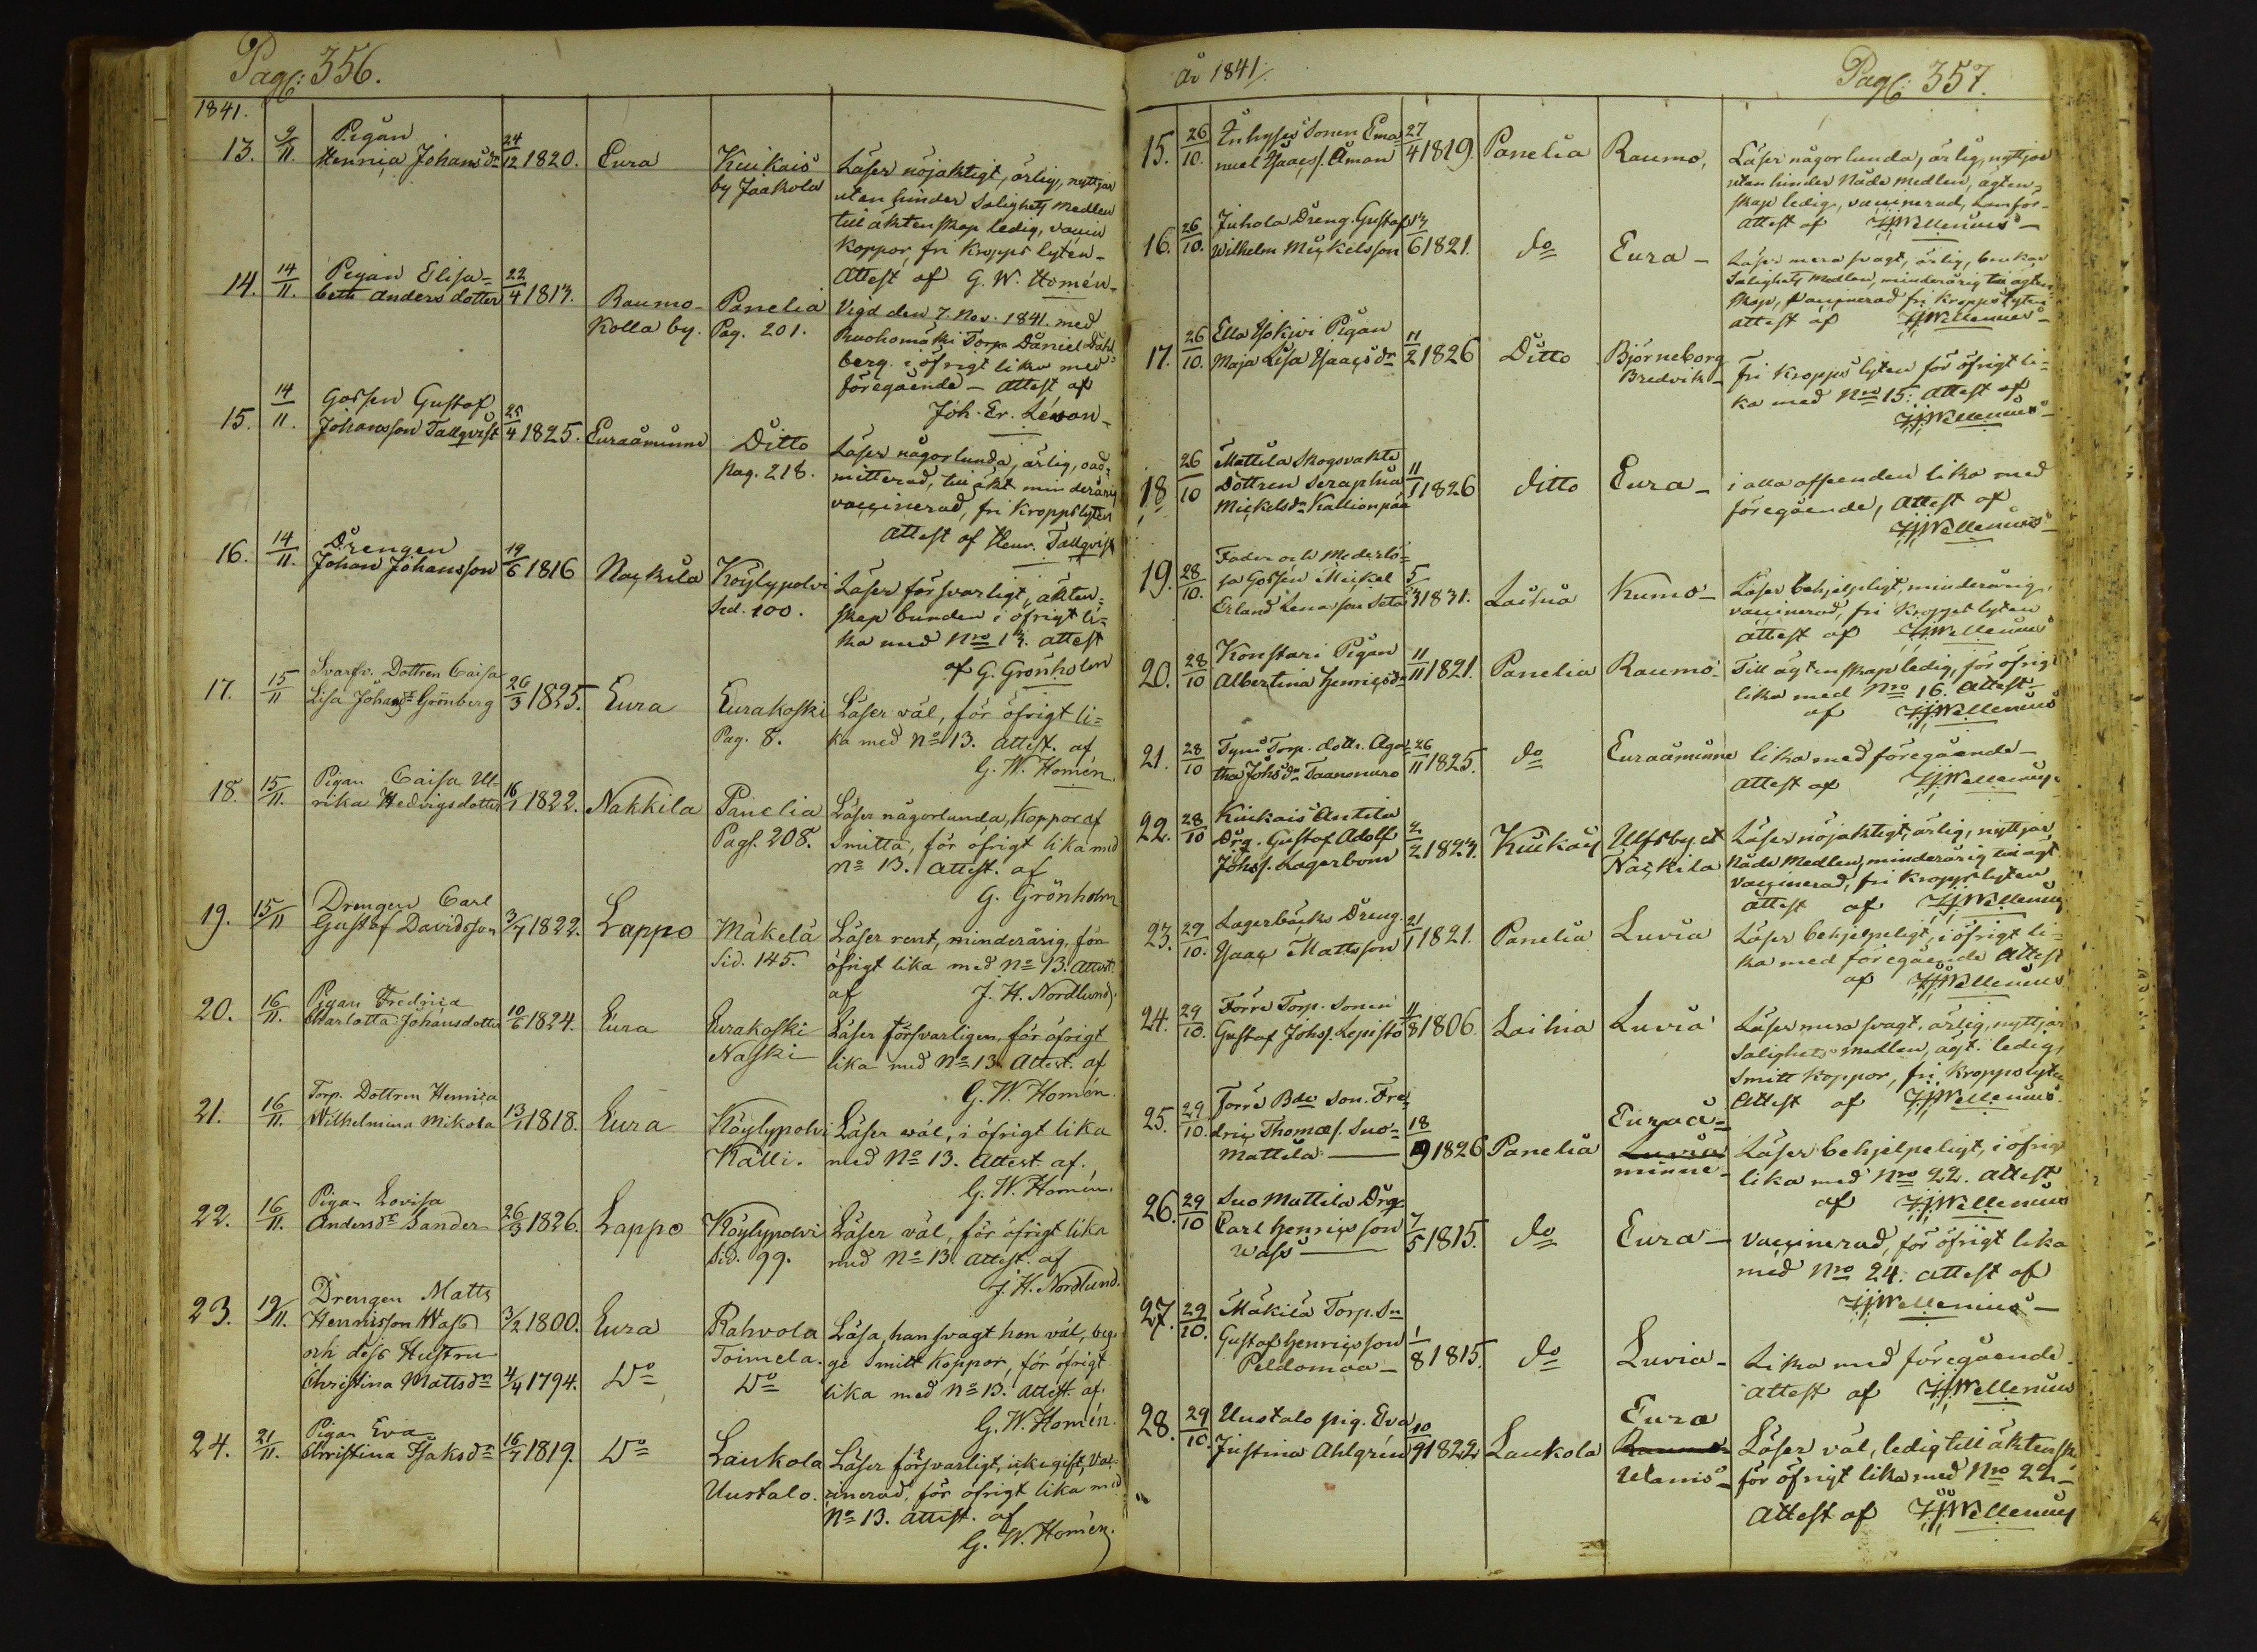 Pag: 356.
1841.
13. 9/11. Pigan
Henrica Johans dr 24/12 1820. Eura Kiukais
by Jaakola
Läser nöjaktigt, ärlig, nyttjar
utan hinder Salighets medlen
till äktenskap ledig, vaccin
koppor, fri kropps lyten-
Attest af G. W. Homén-
14. 14/11. Pigan Elisa=
beth Anders dotter 22/4 1813. Raumo-
Kolla by. Panelia
Pag. 201.
Vigd den 7 Nov. 1841. med
Ruohomäki Torp. Daniel Dahl
berg. i öfrigt lika med
föregående - attest af
Joh. Er. Léwon-
15. 14/11. Gossen Gustaf
Johansson Tallqvist 25/4 1825. Euraåminne Ditto
pag. 218.
Läser någorlunda, ärlig, oad=
mitterad, till äkt. minderårig
vaccinerad, fri kroppslyten
Attest af Henr. Tallqvist
16. 14/11. Drengen
Johan Johansson 19/6 1816 Nackila Köylypolvi
Sid. 100.
Läser försvarligt, äkten=
skap bunden i öfrigt li=
ka med Nro 13. attest
af G. Grönholm
17. 15/11 Svarfv. Dottren Caisa
Lisa Johansdr Grönberg 26/3 1825. Eura Eurakoski
Pag. 8.
Läser väl, för öfrigt li=
ka med No 13. Attest. af
G. W. Homén.
18. 15/11. Pigan Caisa Ul-
rika Hedvigsdotter 16/1 1822. Nakkila Panelia
Pag. 208.
Läser någorlunda, Koppor af
Smitta, för öfrigt lika med
No 13. Attest. af
G. Grönholm
19. 15/11 Drengen Carl
Gustaf Davidsson 3/7 1822. Lappo Mäkelä
Sid. 145.
Läser rent, minderårig, för
öfrigt lika med No 13. Attest.
af J. H. Nordlund.
20. 16/11. Pigan Fredrica
Charlotta Johansdotter 10/6 1824. Eura Eurakoski
Naski
Läser försvarligen, för öfrigt
lika med No 13. Attest. af
G. W. Homén.
21. 16/11. Torp. Dottren Henrica
Wilhelmina Mikola 13/1 1818. Eura Köylypolvi
Källi.
Läser väl, i öfrigt lika
med No 13. Attest. af.
G. W. Homén.
22. 16/11. Pigan Lovisa
Andersdr Sander 26/3 1826. Lappo Köylypolvi
Sid. 99.
Läser väl, för öfrigt lika
med No 13. Attest. af
J. H. Nordlund.
23. 19/11. Drengen Matts
Henricsson Wass 3/2 1800. Eura Rahvola
och dess Hustru Toimela.
Christina Mattsdr 4/4 1794. Do Do
Läsa, han svagt hon väl, beg-
ge Smitt Koppor, för öfrigt
lika med No 13. Attest. af.
G. W. Homén.
24. 21/11. Pigan Eva
Christina Isaksdr 16/7 1819. Do Laukola
Uustalo.
Läser försvarligt, icke gift, Vac-
cinerad, för öfrigt lika med
No 13. Attest. af
G. W. Homén.
År 1841. Pag: 357.
15. 26/10. Inhyses Sonen Ema=
nuel Isaacs. Åman 27/4 1819. Panelia Raumo,
Läser någorlunda, ärlig, nyttjar
utan hinder Nåde medlen, ägten=
skap ledig, vaccinerad,
attest af HJWellenius-
16. 26/10. Juhola Dreng. Gustaf
Wilhelm Mickelsson 13/6 1821. do Eura-
Läser mera svagt, ärlig, brukar
Salighets medlen, minderårig till ägten
skap, Vaccinerad fri kropps lyten
attest af HJWellenius-
17. 26/10. Ella Isokivi Pigan
Maja Lisa Isaacs dr 11/2 1826 Ditto Björneborg
Bredvik-
fri kropps lyten för öfrigt li-
ka med Nro 15. attest af
HJWellenius-
18. 26/10 Mattila Skogsvakte
Dottren Seraphia
Mickelsdr Kallionpää 11/1 1826 ditto Eura-
i alla afseenden lika med
föregående, attest af
HJWellenius-
19. 28/10. Fader och Moderlö-
sa Gossen Mickel
Erland Lenason 5/3 1831. Laihia Kumo-
Läser behjelpligt, minderårig,
vaccinerad, fri kropps lyten
attest af HJWellenius
20. 28/10 Konstari Pigan
Albertina Henricsdr 11/11 1821. Panelia Raumo-
Till ägtenskap ledig, för öfrigt
lika med Nro 16. Attest
af HJWellenius
21. 28/10 Tyni Torp. dottr. Aga-
tha Johsdr Taanonuro 26/11 1825. do Euraåminne
lika med föregående-
Attest af HJWellenius.
22. 28/10 Kiukais Antila
Drg. Gustaf Adolf
Johss. Lagerbom 2/2 1823. Kiukais Ulfsby et
Nackila
Läser nöjaktigt, ärlig, nyttjar
Nåde Medlen, minderårig till ägt.
vaccinerad, fri kropps lyten
attest af HJWellenius
23. 29/10. Lagerbäcks Dreng.
Isaac Mattsson 21/1 1821. Panelia Luvia
Läser behjelpeligt, i öfrigt li-
ka med föregående Attest
af HJWellenius
24. 29/10. Torre Torp. Sonen
Gustaf Johss. Lepistö 4/8 1806. Laihia Luvia
Läser mera svagt, ärlig, nyttjar
Salighets medlen, ägt. ledig,
Smitt koppor, fri kroppslyten
Attest af HJWellenius.
25. 29/10. Torre Bde Son. Fre-
dric Thomas. Suo-
Mattila 18/9 1826 Panelia Euraå-
Luvia
minne-
Läser behjelpeligt, i öfrigt
lika med Nro 22. attest
af HJWellenius
26. 29/10 Suo Mattila Drg.
Carl Henricsson
Wass 7/5 1815. do Eura-
Vaccinerad, för öfrigt lika
med Nro 24. attest af
HJWellenius-
27. 29/10. Mäkilä Torp. Sn
Gustaf Henricsson
Peldomaa- 1/8 1815. do Luvia-
Lika med föregående.
attest af HJWellenius
28. 29/10. Uustalo pig. Eva
Justina Ahlgrén 10/9 1822 Laukola Eura
Raumo
Läser väl, ledig till äktensk.
för öfrigt lika med Nro 22-
Attest af HJWellenius